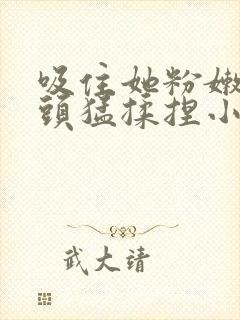 吸住她粉嫩
頭猛揉捏小
武大靖